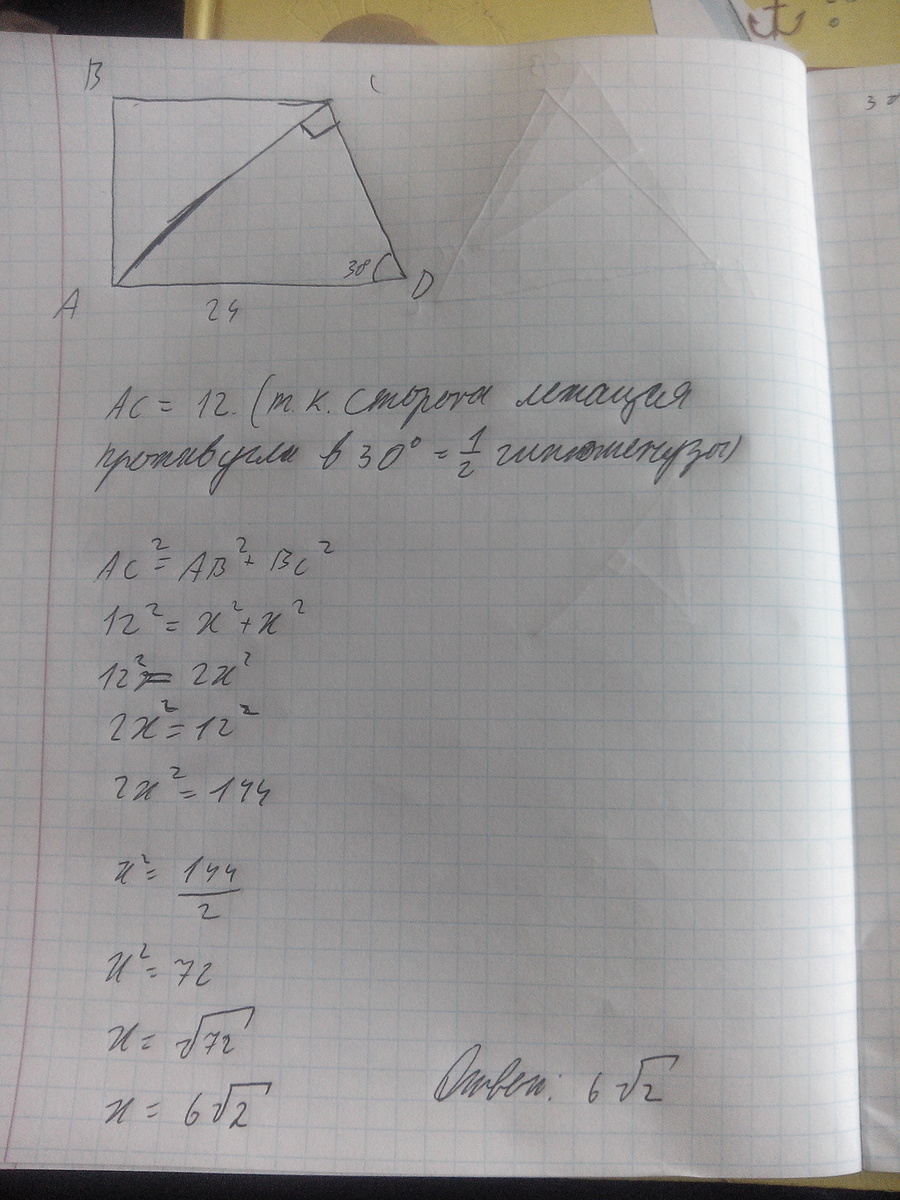 B C
30
A 24 D
AC = 12. (т.к. сторона лежащая
против угла в 30° = 1/2 гипотенузы)
AC² = AB² + BC²
12² = x² + x²
12² = 2x²
2x² = 12²
2x² = 144
x² = 144/2
x² = 72
x = √72
x = 6√2
Ответ: 6√2